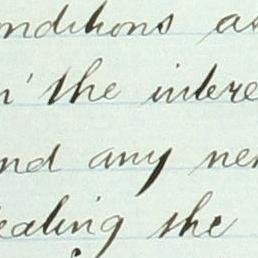 onditions as
n' the intere
nd any ner
ealing the